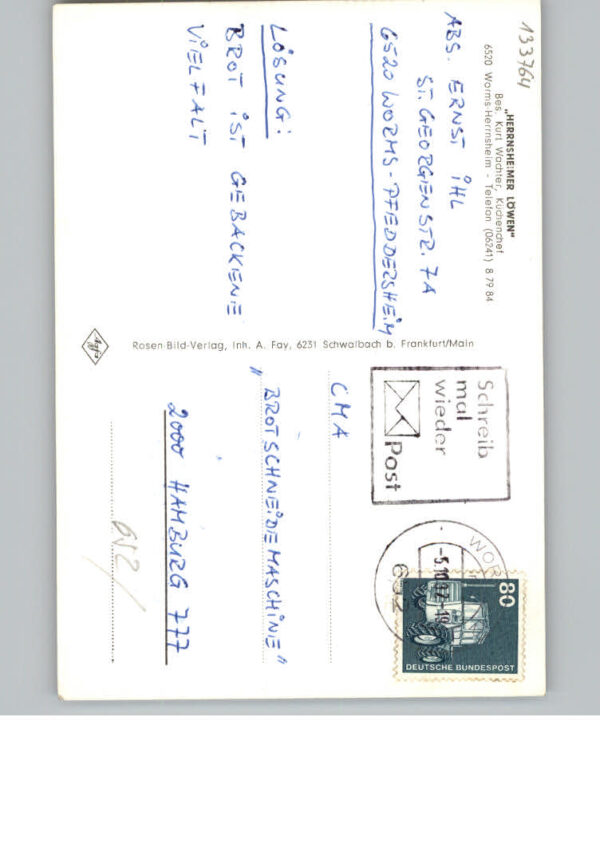 133764
„HERRNSHEIMER LÖWEN"
Bes. Kurt Wachter, Küchenchef
6520 Worms-Herrnsheim - Telefon (06241) 8 79 84
ABS. ERNST IHL
ST. GEORGENSTR. 7A
6520 WORMS-PFEDDERSHEIM
LÖSUNG:
BROT IST GEBACKENE
VIELFALT
Agfa
Rosen-Bild-Verlag, Inh. A. Fay, 6231 Schwalbach b. Frankfurt/Main
Schreib
mal
wieder
Post
WOR
652
80
DEUTSCHE BUNDESPOST
CMA
"BROTSCHNEIDEMASCHINE"
2000 HAMBURG 777
652/